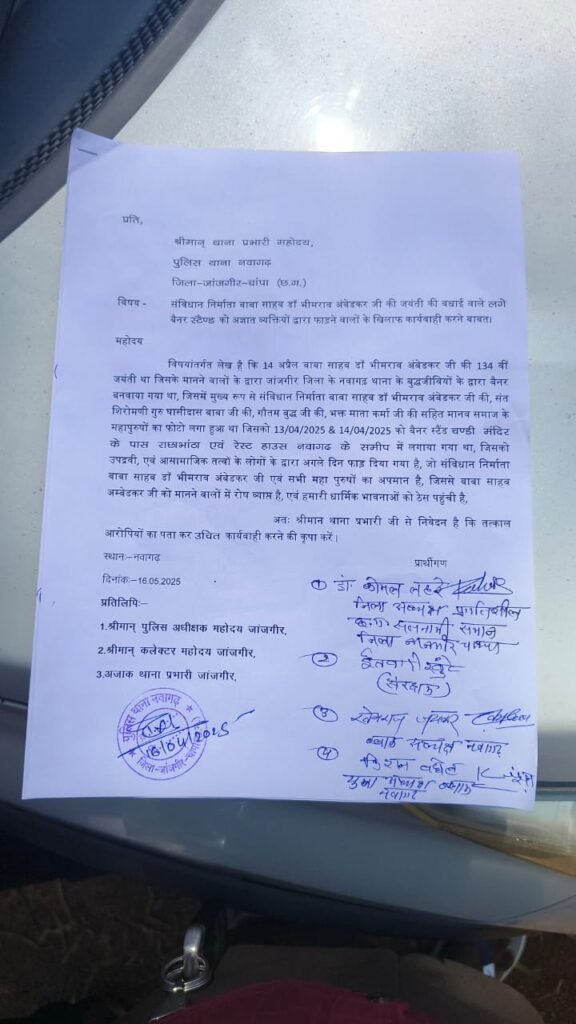 प्रति,
श्रीमान् थाना प्रभारी महोदय,
पुलिस थाना नवागढ़
जिला-जांजगीर-चांपा (छ.ग.)
विषय - संविधान निर्माता बाबा साहब डॉ भीमराव अंबेडकर जी की जयंती की बधाई वाले लगे
बैनर स्टैण्ड को अज्ञात व्यक्तियों द्वारा फाड़ने वालों के खिलाफ कार्यवाही करने बाबत।
महोदय
विषयांतर्गत लेख है कि 14 अप्रैल बाबा साहब डॉ भीमराव अंबेडकर जी की 134 वीं
जयंती था जिसके मानने वालों के द्वारा जांजगीर जिला के नवागढ़ थाना के बुद्धजीवियों के द्वारा बैनर
बनवाया गया था, जिसमें मुख्य रूप से संविधान निर्माता बाबा साहब डॉ भीमराव अंबेडकर जी की, संत
शिरोमणी गुरु घासीदास बाबा जी की, गौतम बुद्ध जी की, भक्त माता कर्मा जी की सहित मानव समाज के
महापुरुषों का फोटो लगा हुआ था जिसको 13/04/2025 & 14/04/2025 को बैनर स्टैंड चण्डी मंदिर
के पास राछाभांठा एवं रेस्ट हाउस नवागढ़ के समीप में लगाया गया था, जिसको
उपद्रवी, एवं आसामाजिक तत्वो के लोगों के द्वारा अगले दिन फाड़ दिया गया है, जो संविधान निर्माता
बाबा साहब डॉ भीमराव अंबेडकर जी एवं सभी महा पुरुषों का अपमान है, जिससे बाबा साहब
अम्बेडकर जी को मानने वालों में रोष व्याप्त है, एवं हमारी धार्मिक भावनाओं को ठेस पहुंची है,
अतः श्रीमान थाना प्रभारी जी से निवेदन है कि तत्काल
आरोपियों का पता कर उचित कार्यवाही करने की कृपा करें।
स्थान:-नवागढ़
दिनांक:-16.05.2025
प्रतिलिपि:-
1.श्रीमान् पुलिस अधीक्षक महोदय जांजगीर,
2.श्रीमान् कलेक्टर महोदय जांजगीर,
3.अजाक थाना प्रभारी जांजगीर,
पुलिस थाना नवागढ़
16/04/2025
जिला-जांजगीर-चांपा
प्रार्थीगण
① डॉ. कोमल लहरे
जिला अध्यक्ष प्रगतिशील
छ.ग. सतनामी समाज
जिला जांजगीर चाम्पा
② इतवारी खुंटे
(संरक्षक)
③
ब्लाक अध्यक्ष नवागढ़
④ किशन बघेल
युवा अध्यक्ष ब्लाक
नवागढ़